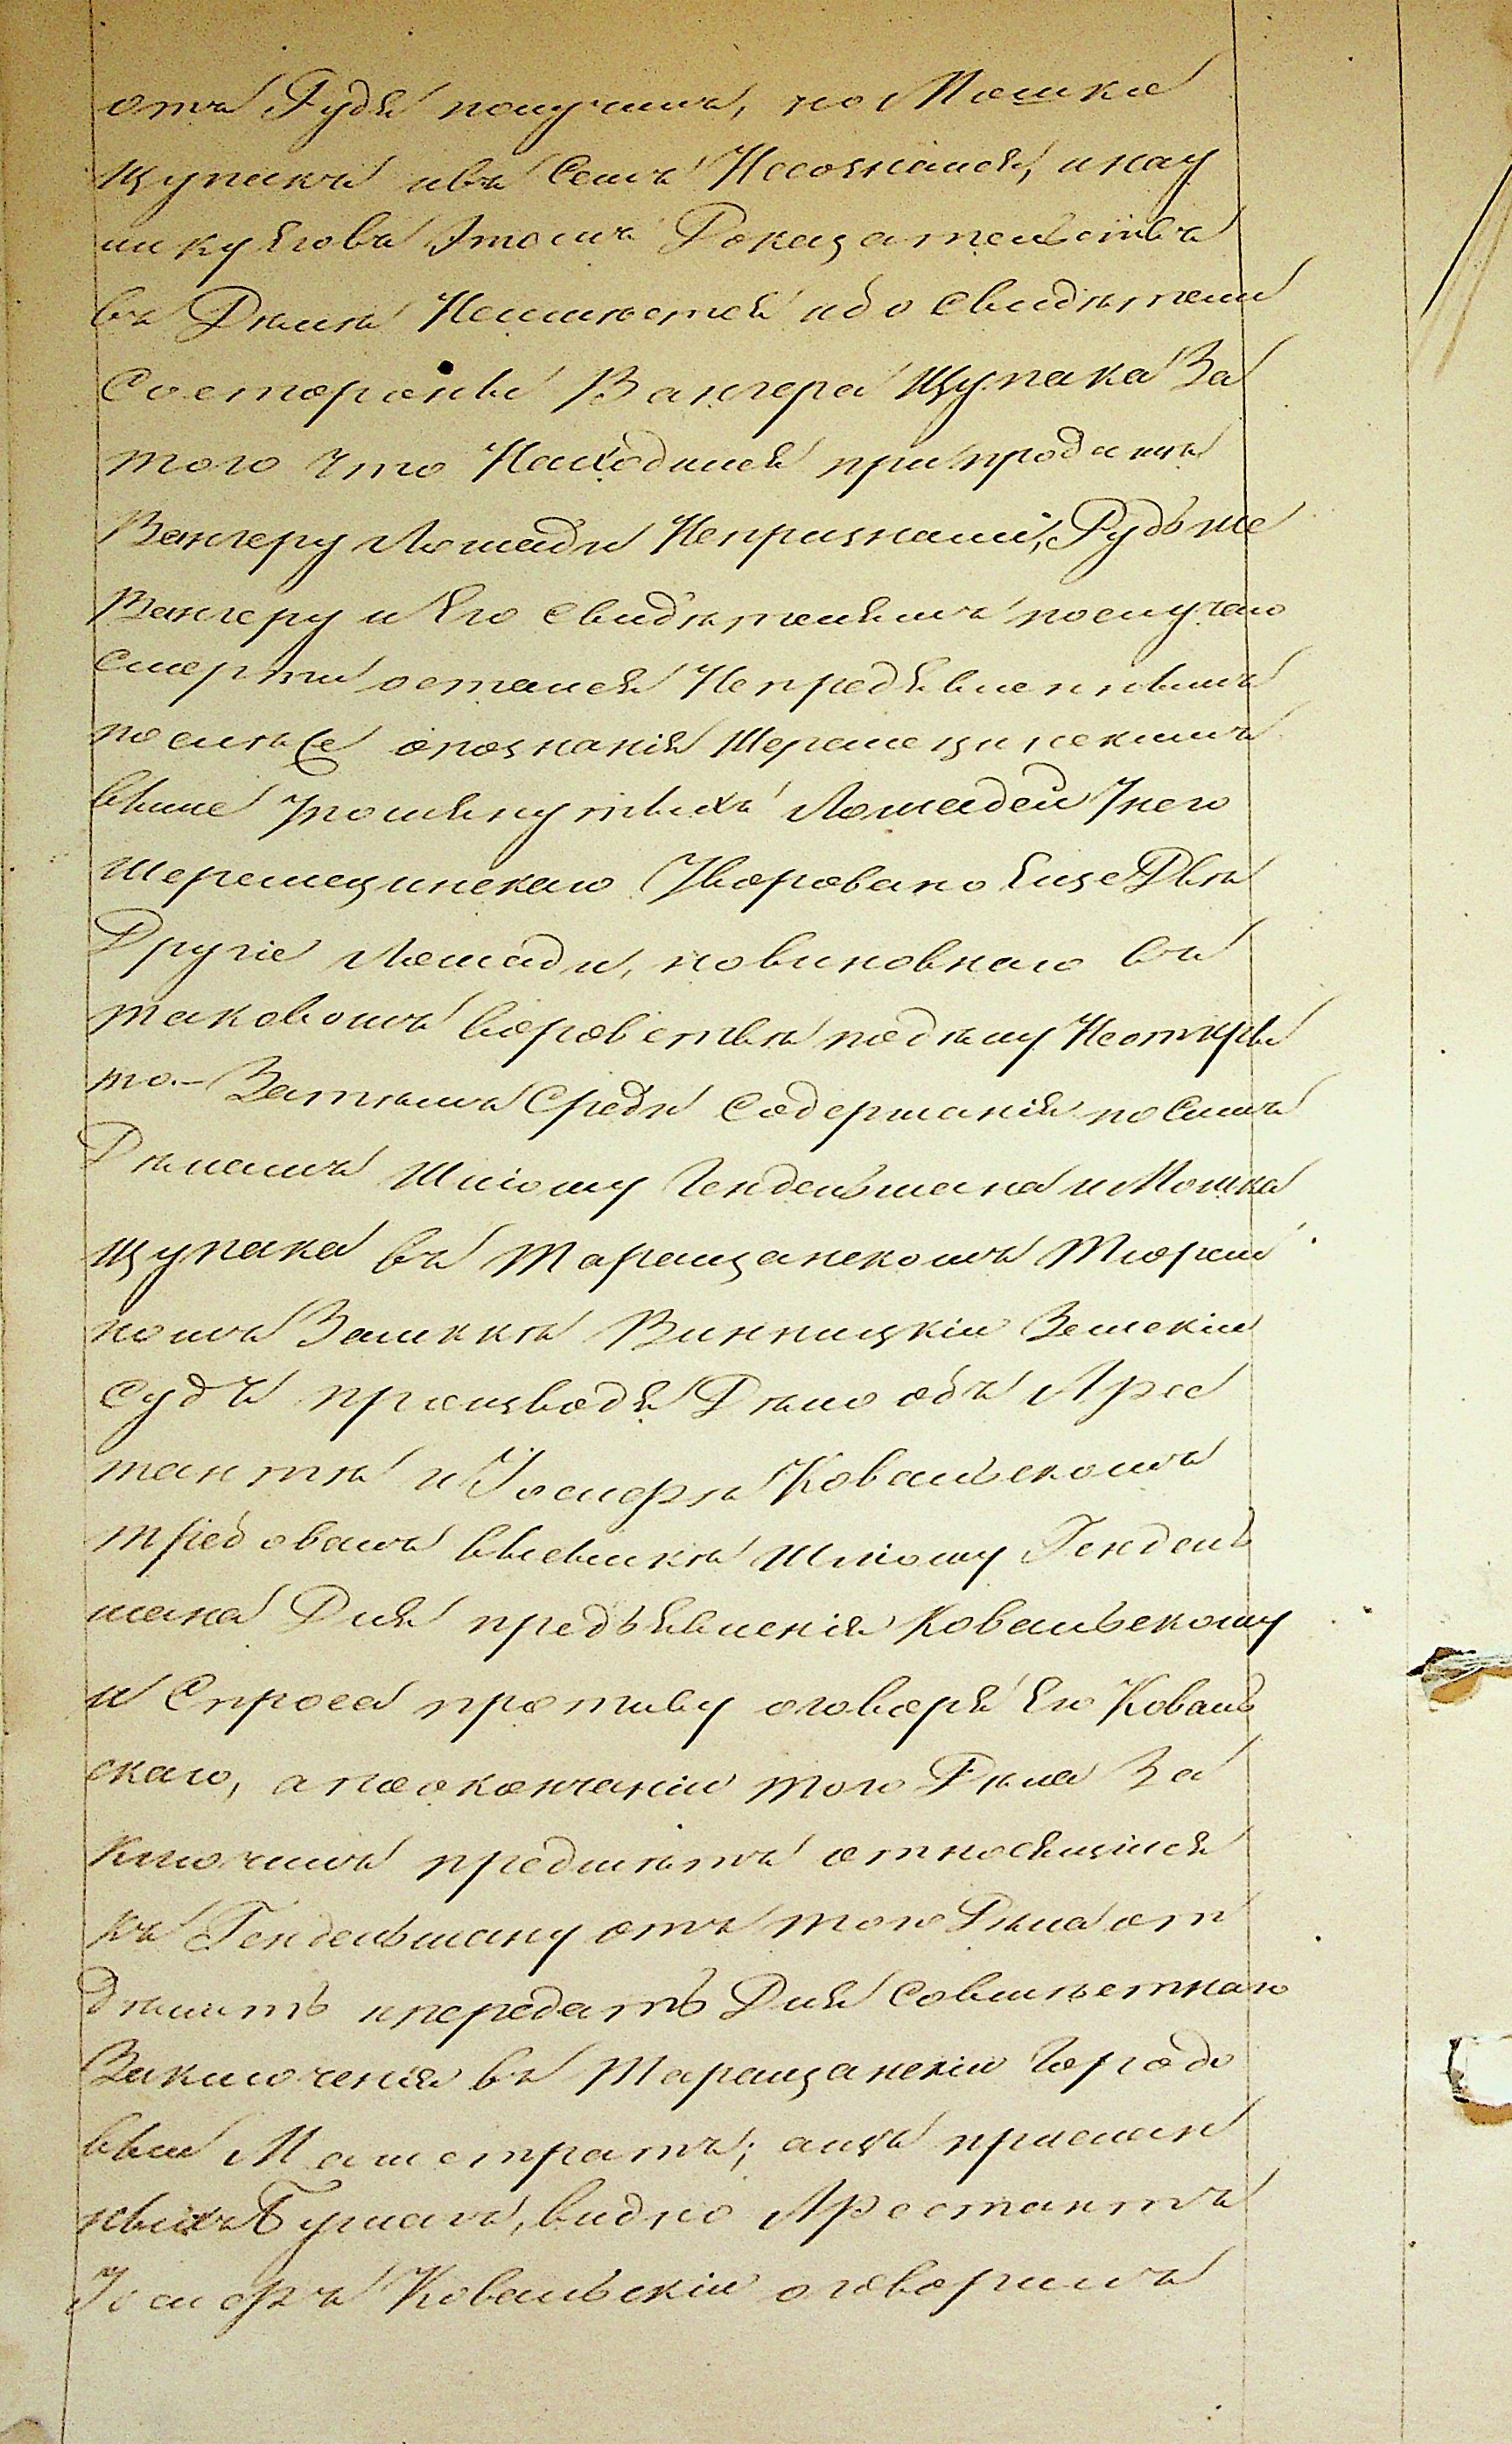 отъ Рудя получилъ, но Мошка
Щупакъ ивъ Семъ Несознался, инау
лику Яговъ Этомъ Доказательствъ
въ Дѣлѣ Неимѣется ибо Свидѣтели
Состороны Вангера Щупака За
того что Находился припродажѣ
Вангеру Лошади Непризнали, Рудь же
Вангеру и Его Свидѣтелямъ послучаю
Смерти остался Непредъявленнымъ
послѣ Се опознанія Шерешеинскимъ
выше Упомянутыхъ Лошадей Унего
Шерешеинскаго Уворовано Еще Двѣ
Другіе Лошади, новиновнаго въ
таковомъ воровствѣ подѣлу Неоткры
то.- Затѣмъ Среди Содержанія поСимъ
Дѣламъ Шліому Гендельмана и Мошка
Щупака въ Таращанскомъ Тюрем
номъ Замккѣ Винницкій Земскій
Судъ производя Дѣло объ Аре
стантѣ и Іосифѣ Ковальскомъ
требовалъ высылки Шліому Гендель
мана Для предъявленія Ковальскому
и Спроса противу оговоря Его Коваль
скаго, апоокончаніи того Дѣла За
ключилъ предметъ относящійся
къ Гендельману отъ того Дѣла от
дѣлить ипередать Для Совмѣстнаго
Заключенія въ Таращанскій Городо
вый Магистратъ; аизъ прислан
ныхъ Бумагъ, видно Арестантъ
Іосифъ Ковальскій оговорилъ